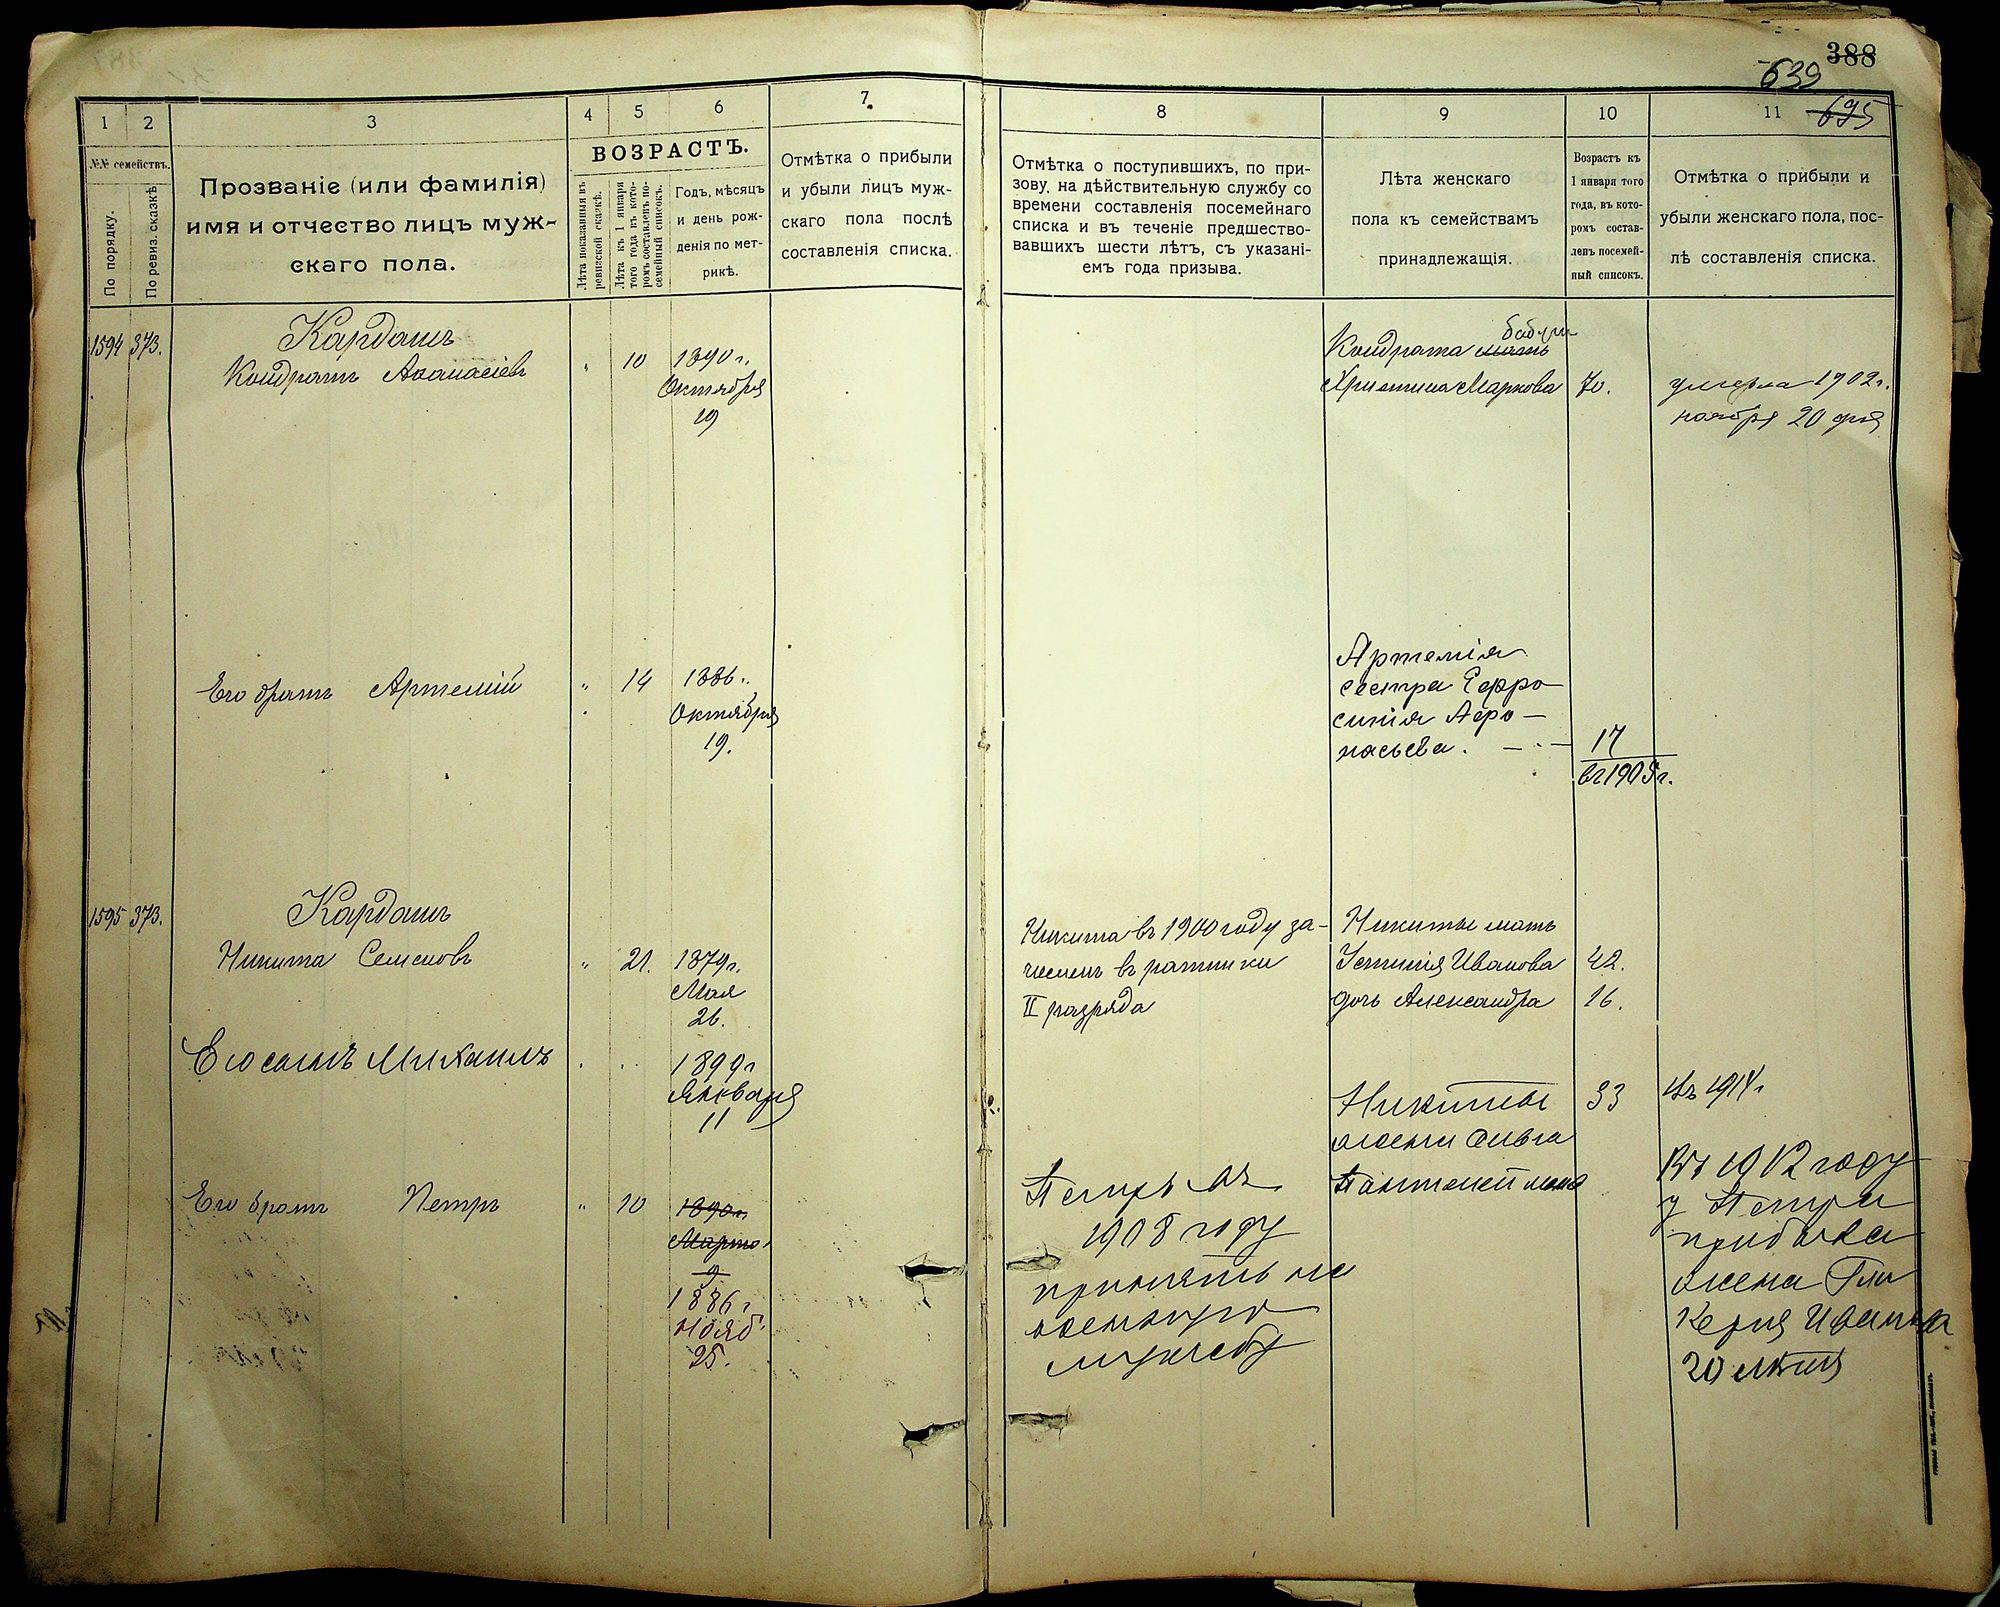 388
639
695
1
2
3
4
5
6
7
8
9
10
11
№№ семействъ.
По порядку.
По ревиз. сказкѣ
Прозваніе (или фамилія)
имя и отчество лицъ муж-
скаго пола.
ВОЗРАСТЪ.
Лѣта показанныя въ
ревизской сказкѣ.
Лѣта къ 1 января
того года въ кото-
ромъ составленъ по-
семейный списокъ.
Годъ, мѣсяцъ
и день рож-
денія по мет-
рикѣ.
Отмѣтка о прибыли
и убыли лицъ муж-
скаго пола послѣ
составленія списка.
Отмѣтка о поступившихъ, по при-
зову, на дѣйствительную службу со
времени составленія посемейнаго
списка и въ теченіе предшество-
вавшихъ шести лѣтъ, съ указані-
емъ года призыва.
Лѣта женскаго
пола къ семействамъ
принадлежащія.
Возрастъ къ
1 января того
года, въ кото-
ромъ состав-
ленъ посемей-
ный списокъ.
Отмѣтка о прибыли и
убыли женскаго пола, пос-
лѣ составленія списка.
1594 373.
Кардашъ
Кондратъ Аѳанасіевъ
" 10 1890 г.
Октября
19
бабушка
Кондрата мать
Христина Маркова 70.
умерла 1902 г.
ноября 20 дня
Его братъ Артемій
" 14 1886 г.
Октября
19.
Артемія
сестра Ефро-
синія Афо-
насьева. 17
въ 1905 г.
1595 373.
Кардашъ
Никита Семеновъ
" 21. 1879 г.
Мая
26.
Никита въ 1900 году за-
численъ въ ратники
II разряда
Никиты мать
Устинія Иванова 42.
дочь Александра 16.
Его сынъ Михаилъ
1899 г
Января
11
Никиты 33
жена Ольга
Пантелеймона
Въ 1914 г
Его братъ Петръ
" 10 1890 г.
Марта
9
1886 г
Нояб.
25.
Петръ въ
1908 году
принятъ на
военную
службу
Въ 1912 году
у Петра
прибыла
жена Гли
керія Иванова
20 лѣтъ